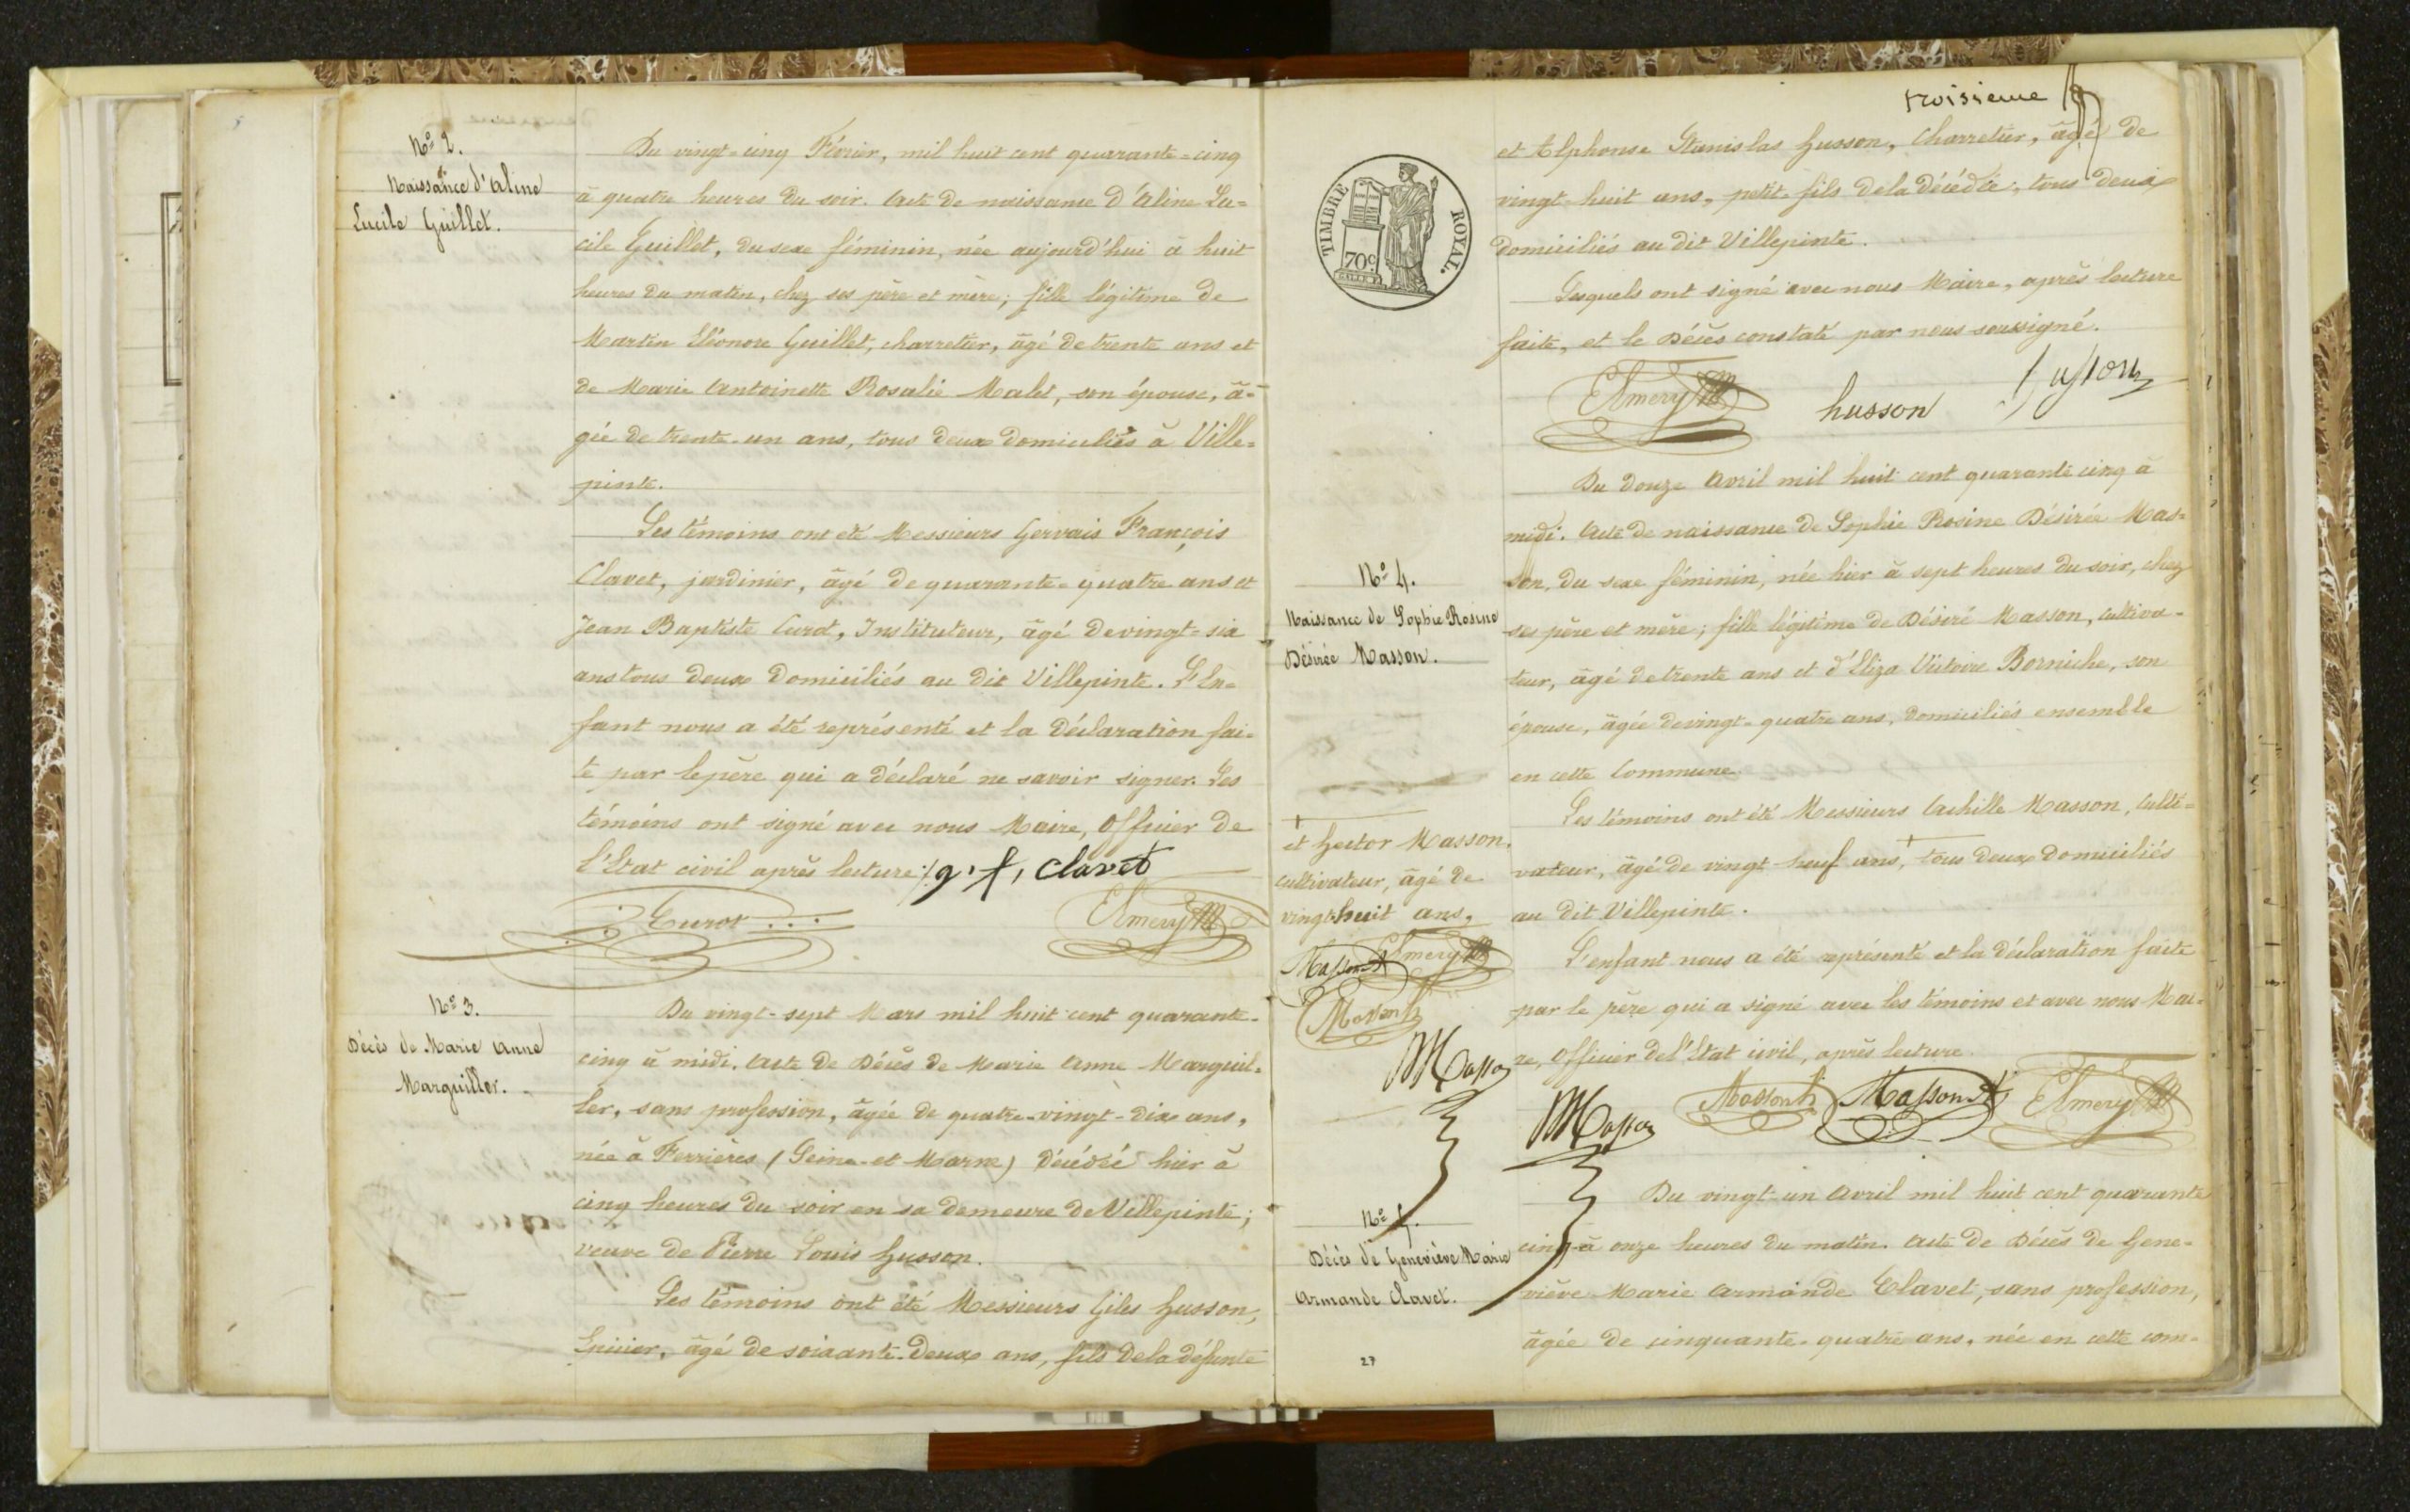 No 2.
Naissance d'Aline
Lucile Guillet.
Du vingt-cinq Février, mil huit cent quarante-cinq
à quatre heures du soir. Acte de naissance d'Aline Lu=
cile Guillet, du sexe féminin, née aujourd'hui à huit
heures du matin, chez ses père et mère; fille légitime de
Martin Eléonore Guillet, charretier, âgé de trente ans et
de Marie Antoinette Rosalie Malet, son épouse, â=
gée de trente-un ans, tous deux domiciliés à Ville=
pinte.
Les témoins ont été Messieurs Gervais François
Clavet, jardinier, âgé de quarante-quatre ans et
Jean Baptiste Curot, Instituteur, âgé de vingt-six
ans tous deux domiciliés au dit Villepinte. L'En=
fant nous a été représenté et la déclaration fai=
te par le père qui a déclaré ne savoir signer. Les
témoins ont signé avec nous Maire, Officier de
l'Etat civil après lecture. g. f, Clavet
Curot Emery
No 3.
Décès de Marie Anne
Marguiller.
Du vingt-sept Mars mil huit cent quarante-
cinq à midi. Acte de Décès de Marie Anne Marguil=
ler, sans profession, âgée de quatre-vingt-dix ans,
née à Ferrières (Seine-et Marne) décédée hier à
cinq heures du soir en sa demeure de Villepinte;
veuve de Pierre Louis Husson.
Les témoins ont été Messieurs Giles Husson,
Epicier, âgé de soixante-deux ans, fils de la défunte
troisieme
TIMBRE ROYAL.
70c
et Alphonse Stanislas Husson, Charretier, âgé de
vingt-huit ans, petit-fils de la décédée, tous deux
domiciliés au dit Villepinte.
Lesquels ont signé avec nous Maire, après lecture
faite, et le Décès constaté par nous soussigné.
Emery husson husson
No 4.
Naissance de Sophie Rosine
Désirée Masson.
Du douze Avril mil huit cent quarante cinq à
midi. Acte de naissance de Sophie Rosine Désirée Mas=
son, du sexe féminin, née hier à sept heures du soir, chez
ses père et mère; fille légitime de Désiré Masson, cultiva-
teur, âgé de trente ans et d'Eliza Victoire Borniche, son
épouse, âgée de vingt-quatre ans, domiciliés ensemble
en cette Commune.
Les témoins ont été Messieurs Achille Masson, Culti=
vateur, âgé de vingt-neuf ans, + tous deux domiciliés
au dit Villepinte.
+ et Hector Masson,
cultivateur, âgé de
vingt-huit ans,
Masson Emery
Masson
Masson
L'enfant nous a été représenté et la déclaration faite
par le père qui a signé avec les témoins et avec nous Mai=
re, Officier de l'Etat civil, après lecture.
Masson Masson Masson Emery
No
Décès de Geneviève Marie
Armande Clavet.
Du vingt-un Avril mil huit cent quarante
cinq à onze heures du matin. Acte de Décès de Gene-
viève Marie Armande Clavet, sans profession,
âgée de cinquante-quatre ans, née en cette com-
27